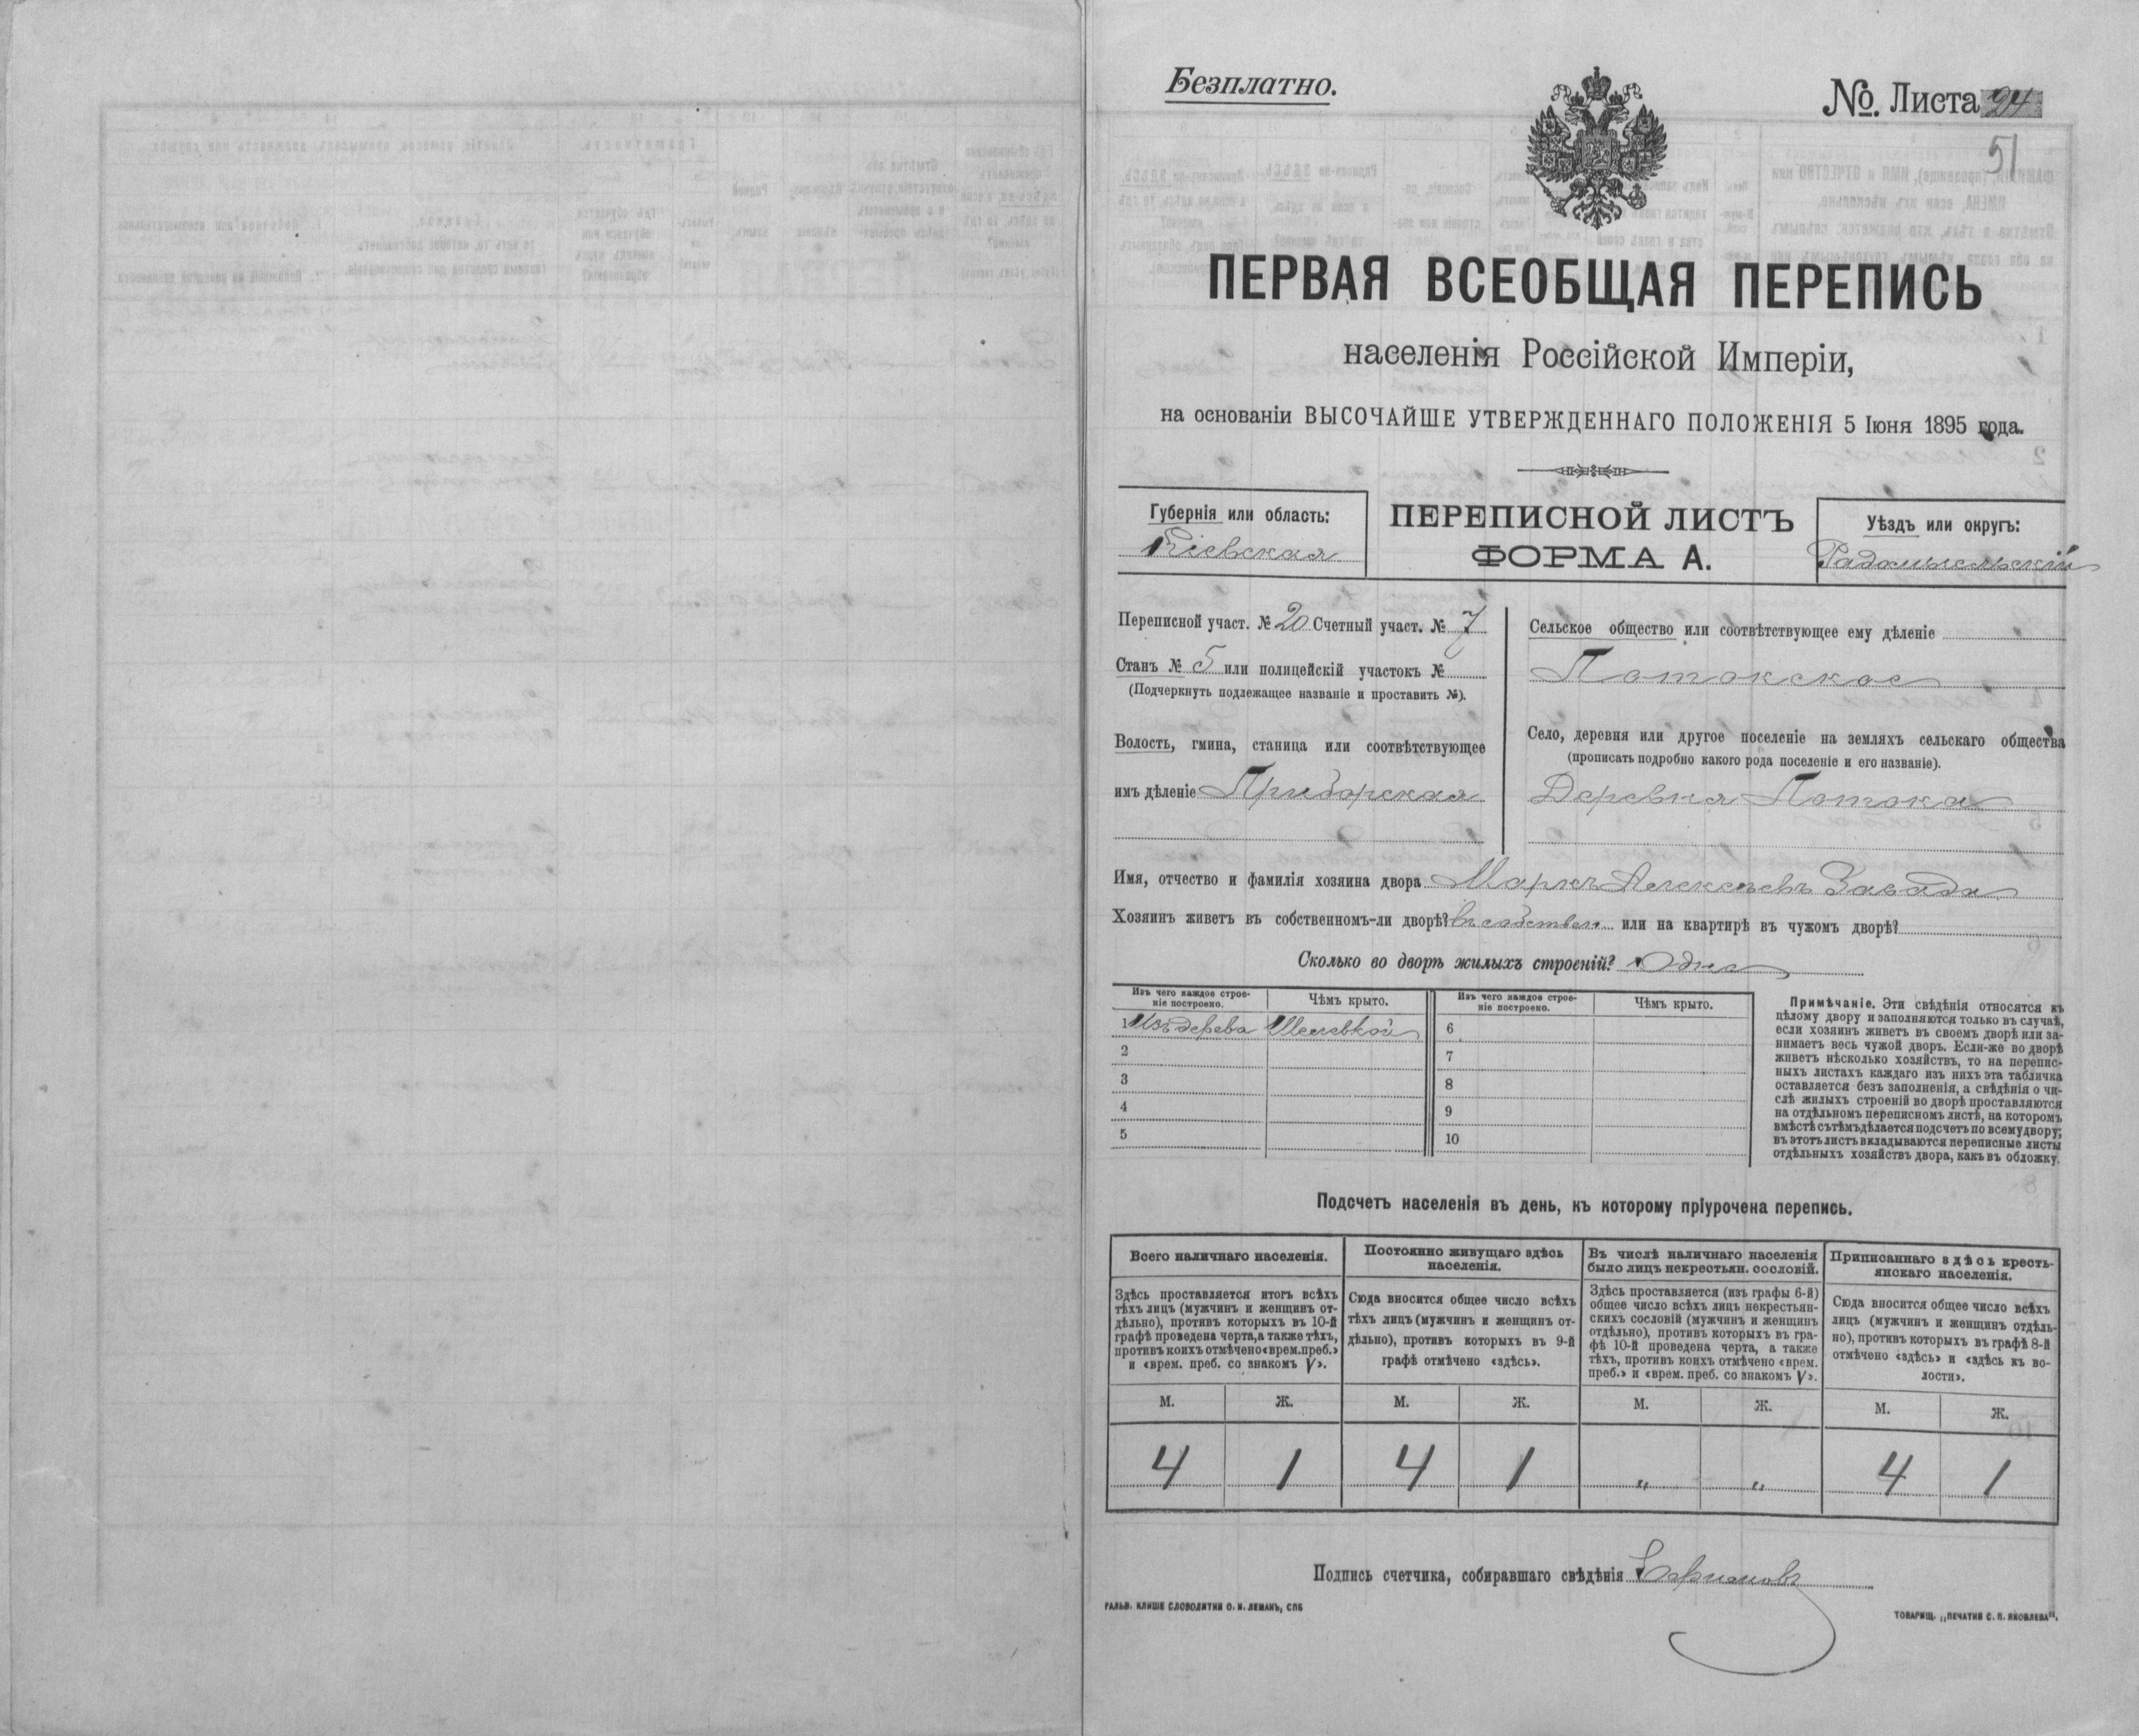 Безплатно.
№. Листа 24
51
ПЕРВАЯ ВСЕОБЩАЯ ПЕРЕПИСЬ
населенія Россійской Имперіи,
на основаніи ВЫСОЧАЙШЕ УТВЕРЖДЕННАГО ПОЛОЖЕНІЯ 5 Іюня 1895 года.
Губернія или область:
Кіевская
ПЕРЕПИСНОЙ ЛИСТЪ
ФОРМА А.
Уѣздъ или округъ:
Радомысльскій
Переписной участ. № 20 Счетный участ. № 7
Станъ № 5 или полицейскій участокъ №
(Подчеркнуть подлежащее названіе и проставить №).
Волость, гмина, станица или соотвѣтствующее
имъ дѣленіе Приборская
Сельское общество или соотвѣтствующее ему дѣленіе
Потокское
Село, деревня или другое поселеніе на земляхъ сельскаго общества
(прописать подробно какого рода поселеніе и его названіе).
Деревня Потоки
Имя, отчество и фамилія хозяина двора Маркъ Алексѣевъ Завада
Хозяинъ живетъ въ собственномъ-ли дворѣ? въ собствен. или на квартирѣ въ чужомъ дворѣ?
Сколько во дворѣ жилыхъ строеній? Одна
Изъ чего каждое строе-
ніе построено.
Чѣмъ крыто.
Изъ чего каждое строе-
ніе построено.
Чѣмъ крыто.
1 Изъ дерева Шелевкой 6
2 7
3 8
4 9
5 10
Примѣчаніе. Эти свѣдѣнія относятся къ
цѣлому двору и заполняются только въ случаѣ,
если хозяинъ живетъ въ своемъ дворѣ или за-
нимаетъ весь чужой дворъ. Если-же во дворѣ
живетъ нѣсколько хозяйствъ, то на перепис-
ныхъ листахъ каждаго изъ нихъ эта табличка
оставляется безъ заполненія, а свѣдѣнія о чи-
слѣ жилыхъ строеній во дворѣ проставляются
на отдѣльномъ переписномъ листѣ, на которомъ
вмѣстѣ съ тѣмъ дѣлается подсчетъ по всему двору;
въ этотъ листъ вкладываются переписные листы
отдѣльныхъ хозяйствъ двора, какъ въ обложку.
Подсчетъ населенія въ день, къ которому пріурочена перепись.
Всего наличнаго населенія.
Здѣсь проставляется итогъ всѣхъ
тѣхъ лицъ (мужчинъ и женщинъ от-
дѣльно), противъ которыхъ въ 10-й
графѣ проведена черта, а также тѣхъ,
противъ коихъ отмѣчено «врем. преб.»
и «врем. преб. со знакомъ V».
Постоянно живущаго здѣсь
населенія.
Сюда вносится общее число всѣхъ
тѣхъ лицъ (мужчинъ и женщинъ от-
дѣльно), противъ которыхъ въ 9-й
графѣ отмѣчено «здѣсь».
Въ числѣ наличнаго населенія
было лицъ некрестьян. сословій.
Здѣсь проставляется (изъ графы 6-й)
общее число всѣхъ лицъ некрестьян-
скихъ сословій (мужчинъ и женщинъ
отдѣльно), противъ которыхъ въ гра-
фѣ 10-й проведена черта, а также
тѣхъ, противъ коихъ отмѣчено «врем.
преб.» и «врем. преб. со знакомъ V».
Приписаннаго здѣсь кресть-
янскаго населенія.
Сюда вносится общее число всѣхъ
лицъ (мужчинъ и женщинъ отдѣль-
но), противъ которыхъ въ графѣ 8-й
отмѣчено «здѣсь» и «здѣсь къ во-
лости».
М. Ж. М. Ж. М. Ж. М. Ж.
4 1 4 1 „ „ 4 1
Подпись счетчика, собиравшаго свѣдѣнія
ГАЛЬВ. КЛИШЕ СЛОВОЛИТНИ О. И. ЛЕМАНЪ, СПБ
ТОВАРИЩ. „ПЕЧАТНЯ С. П. ЯКОВЛЕВА".